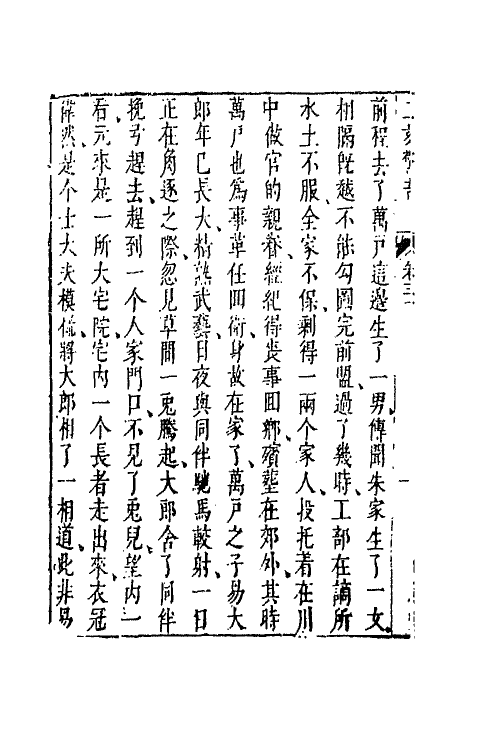 二刻驚奇 卷三十
前程去了萬戶這邊生了一男傳聞朱家生了一女
相隔旣越不能勾圓完前盟過了幾時工部在謫所
水土不服全家不保剩得一兩個家人投托着在川
中做官的親眷經紀得喪事回鄉殯塟在郊外其時
萬戶也爲事革任回衛身故在家了萬戶之子易大
郎年已長大精熟武藝日夜與同伴馳馬較射一日
正在角逐之際忽見草間一兎騰起大郎舍了同伴
挽弓趕去趕到一个人家門口不見了兎兒望内一
看元來是一所大宅院宅内一个長者走出來衣冠
偉然是个士大夫模樣將大郎相了一相道此非易